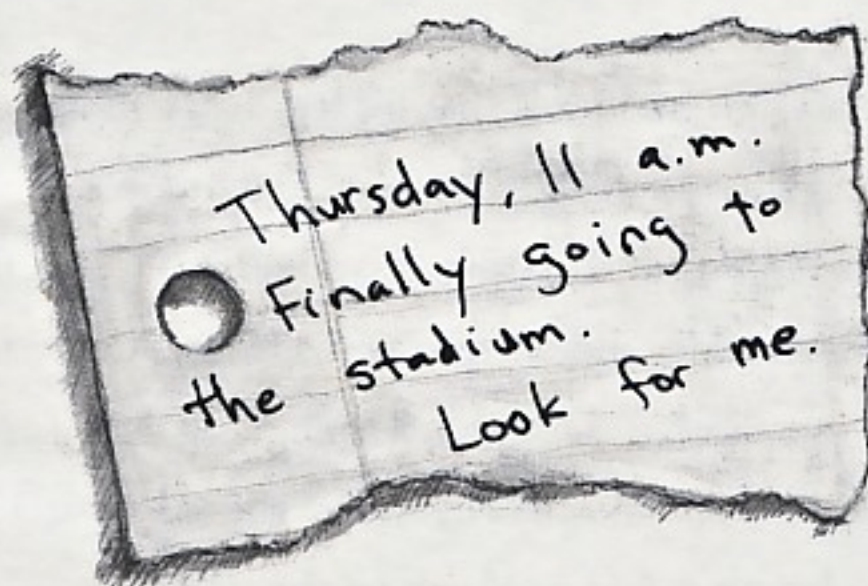 Thursday, 11 a.m.
Finally going to
the stadium.
Look for me.